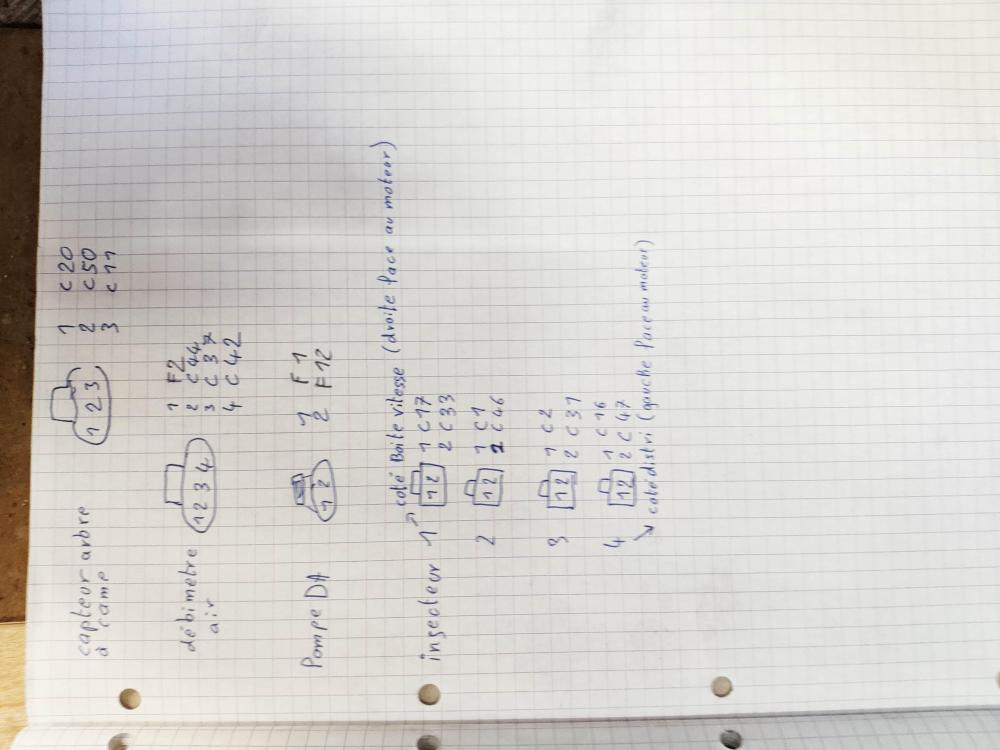 capteur arbre
à came
1 2 3
1 C20
2 C50
3 C11
débimetre
air
1 2 3 4
1 F2
2 C44
3 C37
4 C42
Pompe DA
1 2
1 F1
2 F12
coté Boite vitesse (droite face au moteur)
injecteur 1
1 2
1 C17
2 C33
2
1 2
1 C1
2 C46
3
1 2
1 C2
2 C31
4
1 2
1 C16
2 C47
coté distri (gauche face au moteur)